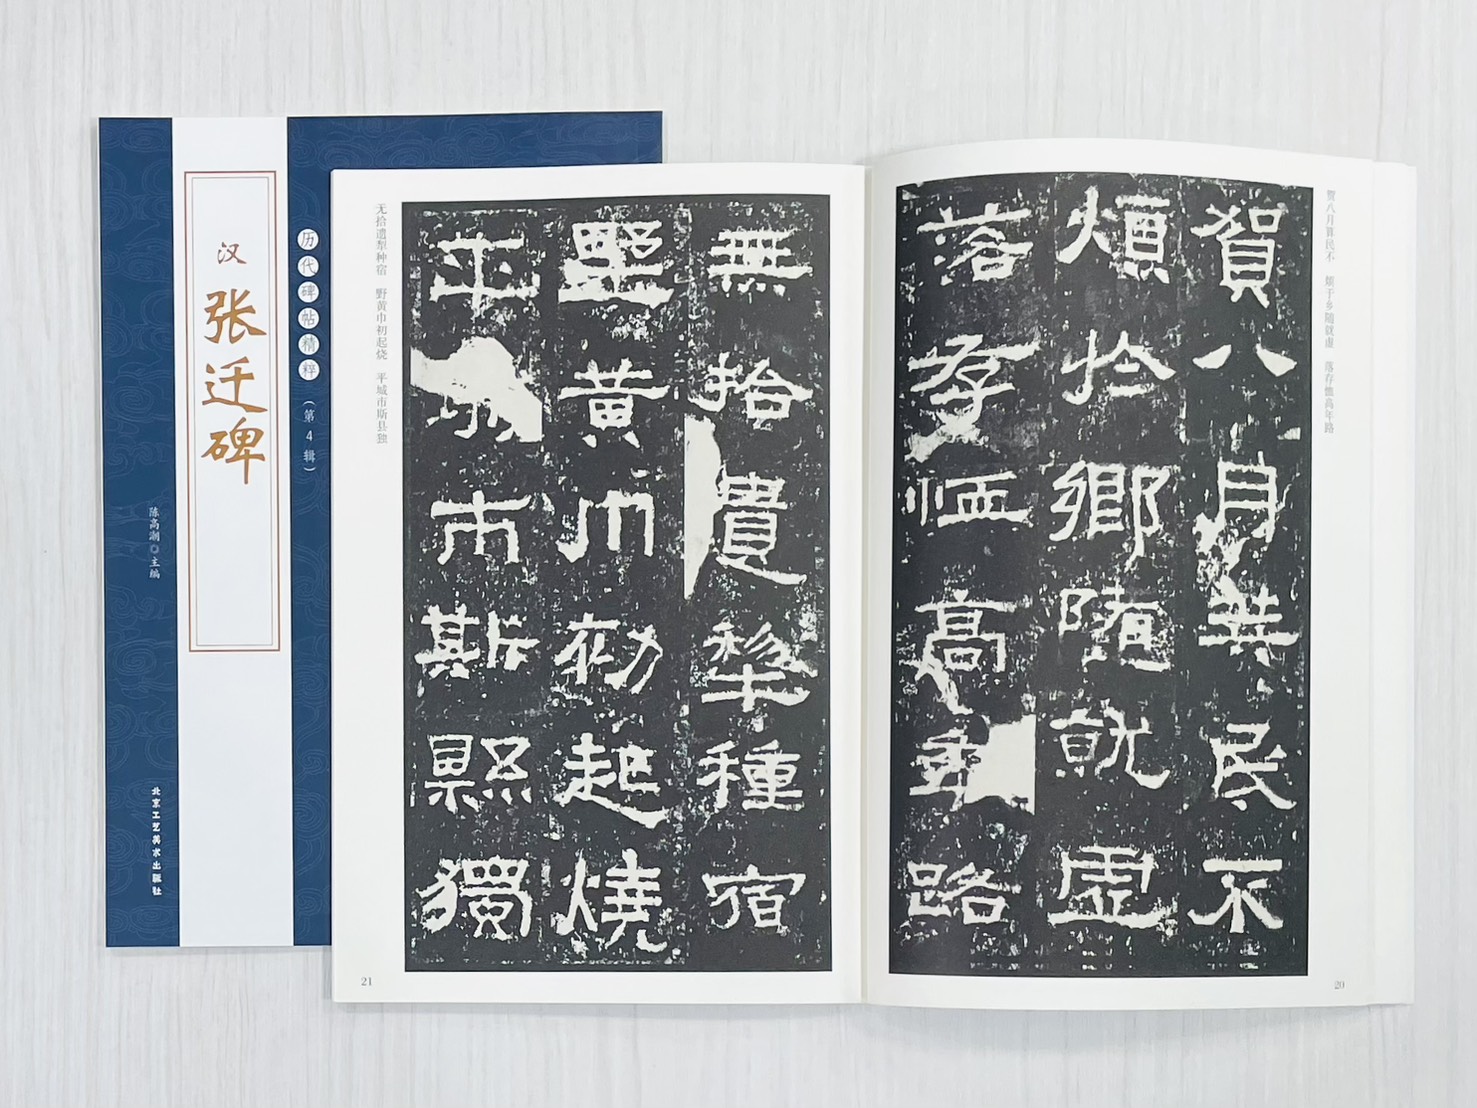 汉
张迁碑
历代碑帖精粹
（第4辑）
陈高潮◎主编
北京工艺美术出版社
贺八月算民不　烦于乡随就虚　落存恤高年路
賀八月筭民不
煩於鄉隨就虛
落存恤高年路
20
無拾遺犂種宿
野黄巾初起燒
平城市斯縣獨
无拾遗犁种宿　野黄巾初起烧　平城市斯县独
21